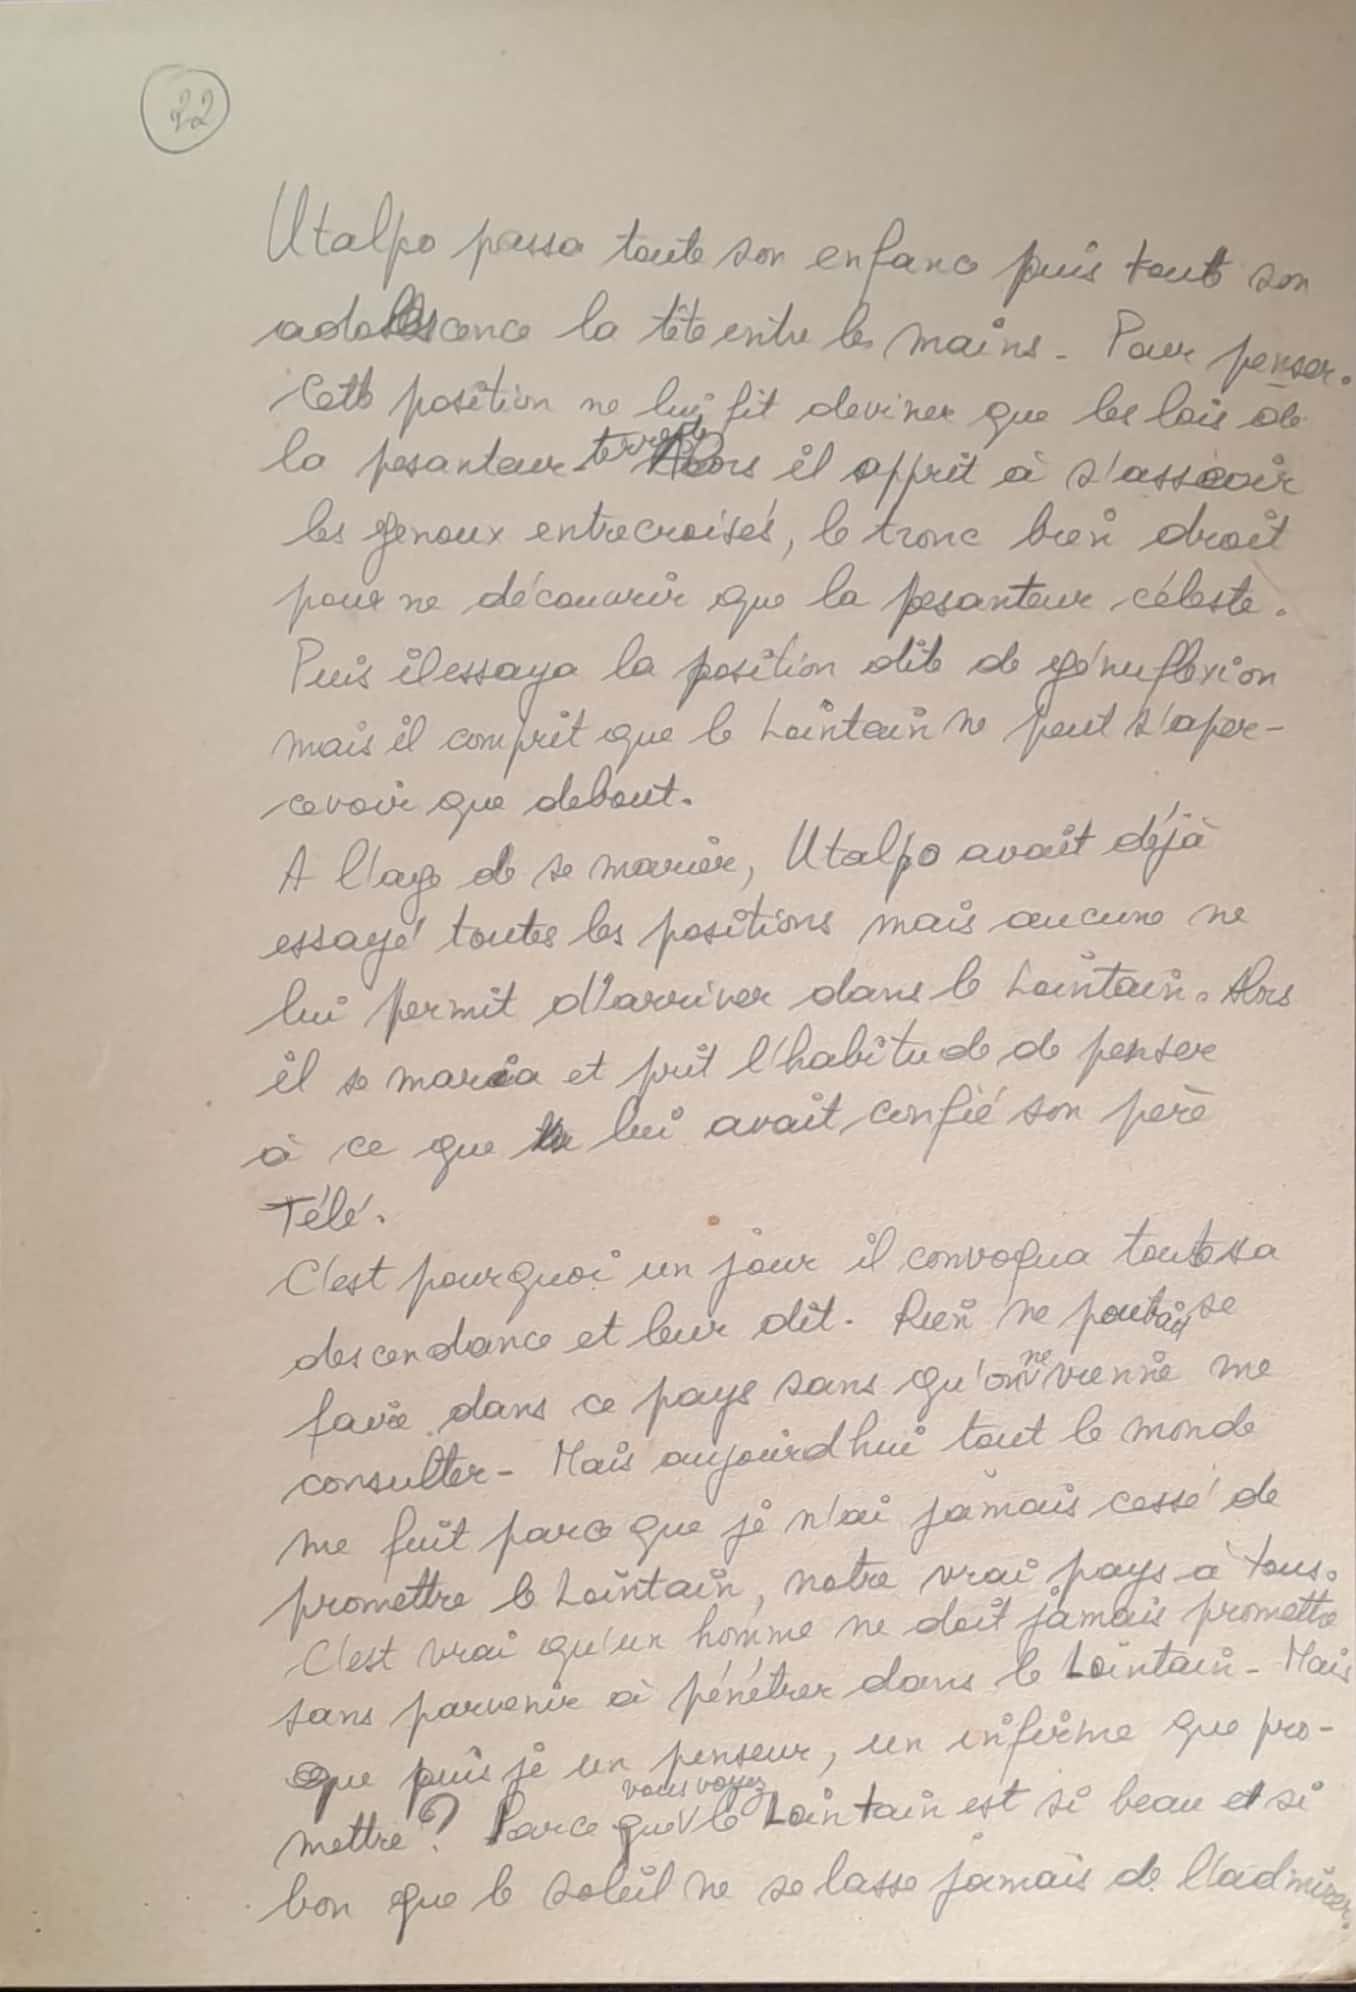 22
Utalpo passa toute son enfance puis toute son
adolescence la tête entre les mains - Pour penser.
Cette position ne lui fit deviner que les lois de
la pesanteur terrestre Alors il apprit à s'asseoir
les genoux entrecroisés, le tronc bien droit
pour ne découvrir que la pesanteur céleste.
Puis il essaya la position dite de génuflexion
mais il comprit que le Lointain ne peut s'aper-
cevoir que debout.
A l'age de se marier, Utalpo avait déjà
essayé toutes les positions mais aucune ne
lui permit d'arriver dans le Lointain. Alors
il se maria et prit l'habitude de penser
à ce que lui avait confié son père
Télé.
C'est pourquoi un jour il convoqua toute sa
descendance et leur dit. Rien ne pouvait se
faire dans ce pays sans qu'on ne vienne me
consulter - Mais aujourd'hui tout le monde
me fuit parce que je n'ai jamais cessé de
promettre le Lointain, notre vrai pays à tous.
C'est vrai qu'un homme ne doit jamais promettre
sans parvenir à pénétrer dans le Lointain - Mais
que puis je un penseur, un infirme que pro-
mettre ? Parce que vous voyez le Lointain est si beau et si
bon que le soleil ne se lasse jamais de l'admirer.